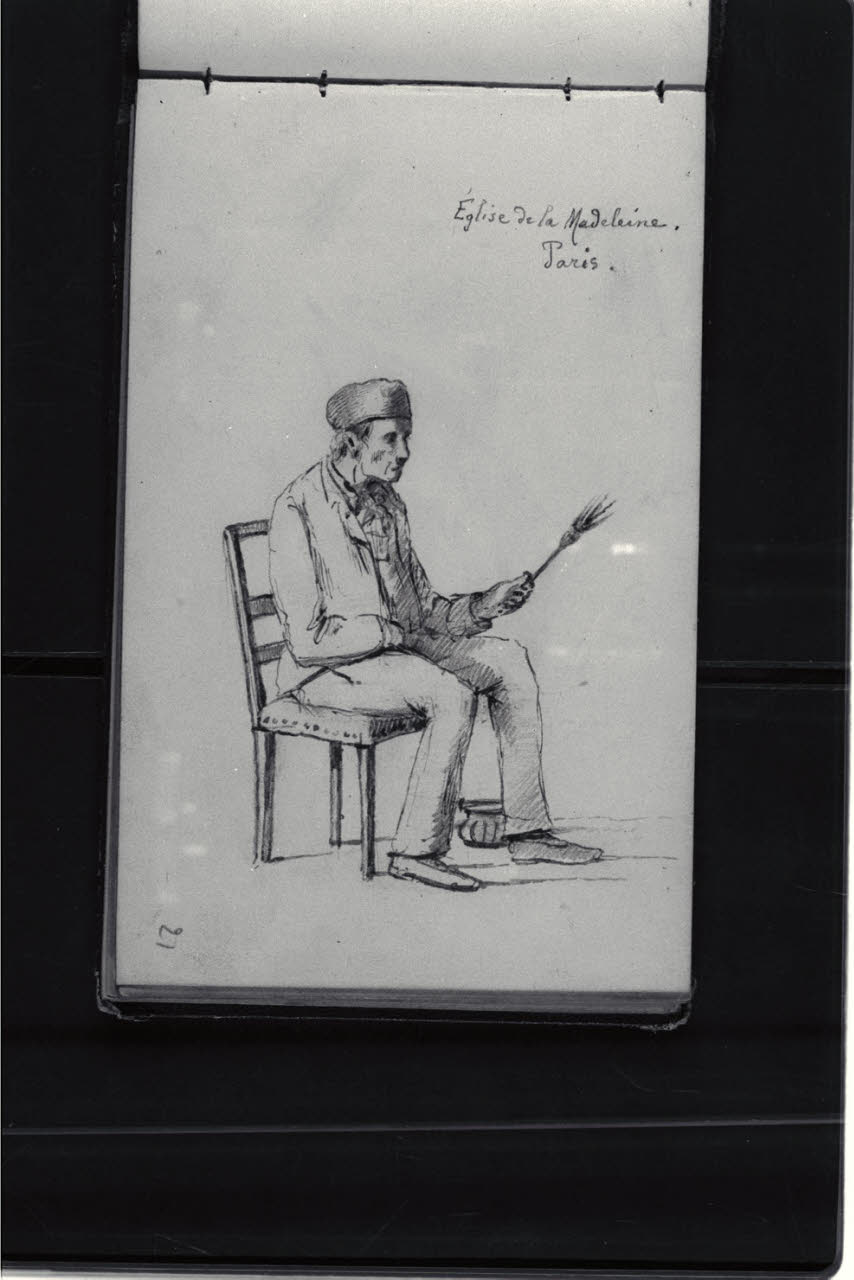 Église de la Madeleine.
Paris.
21